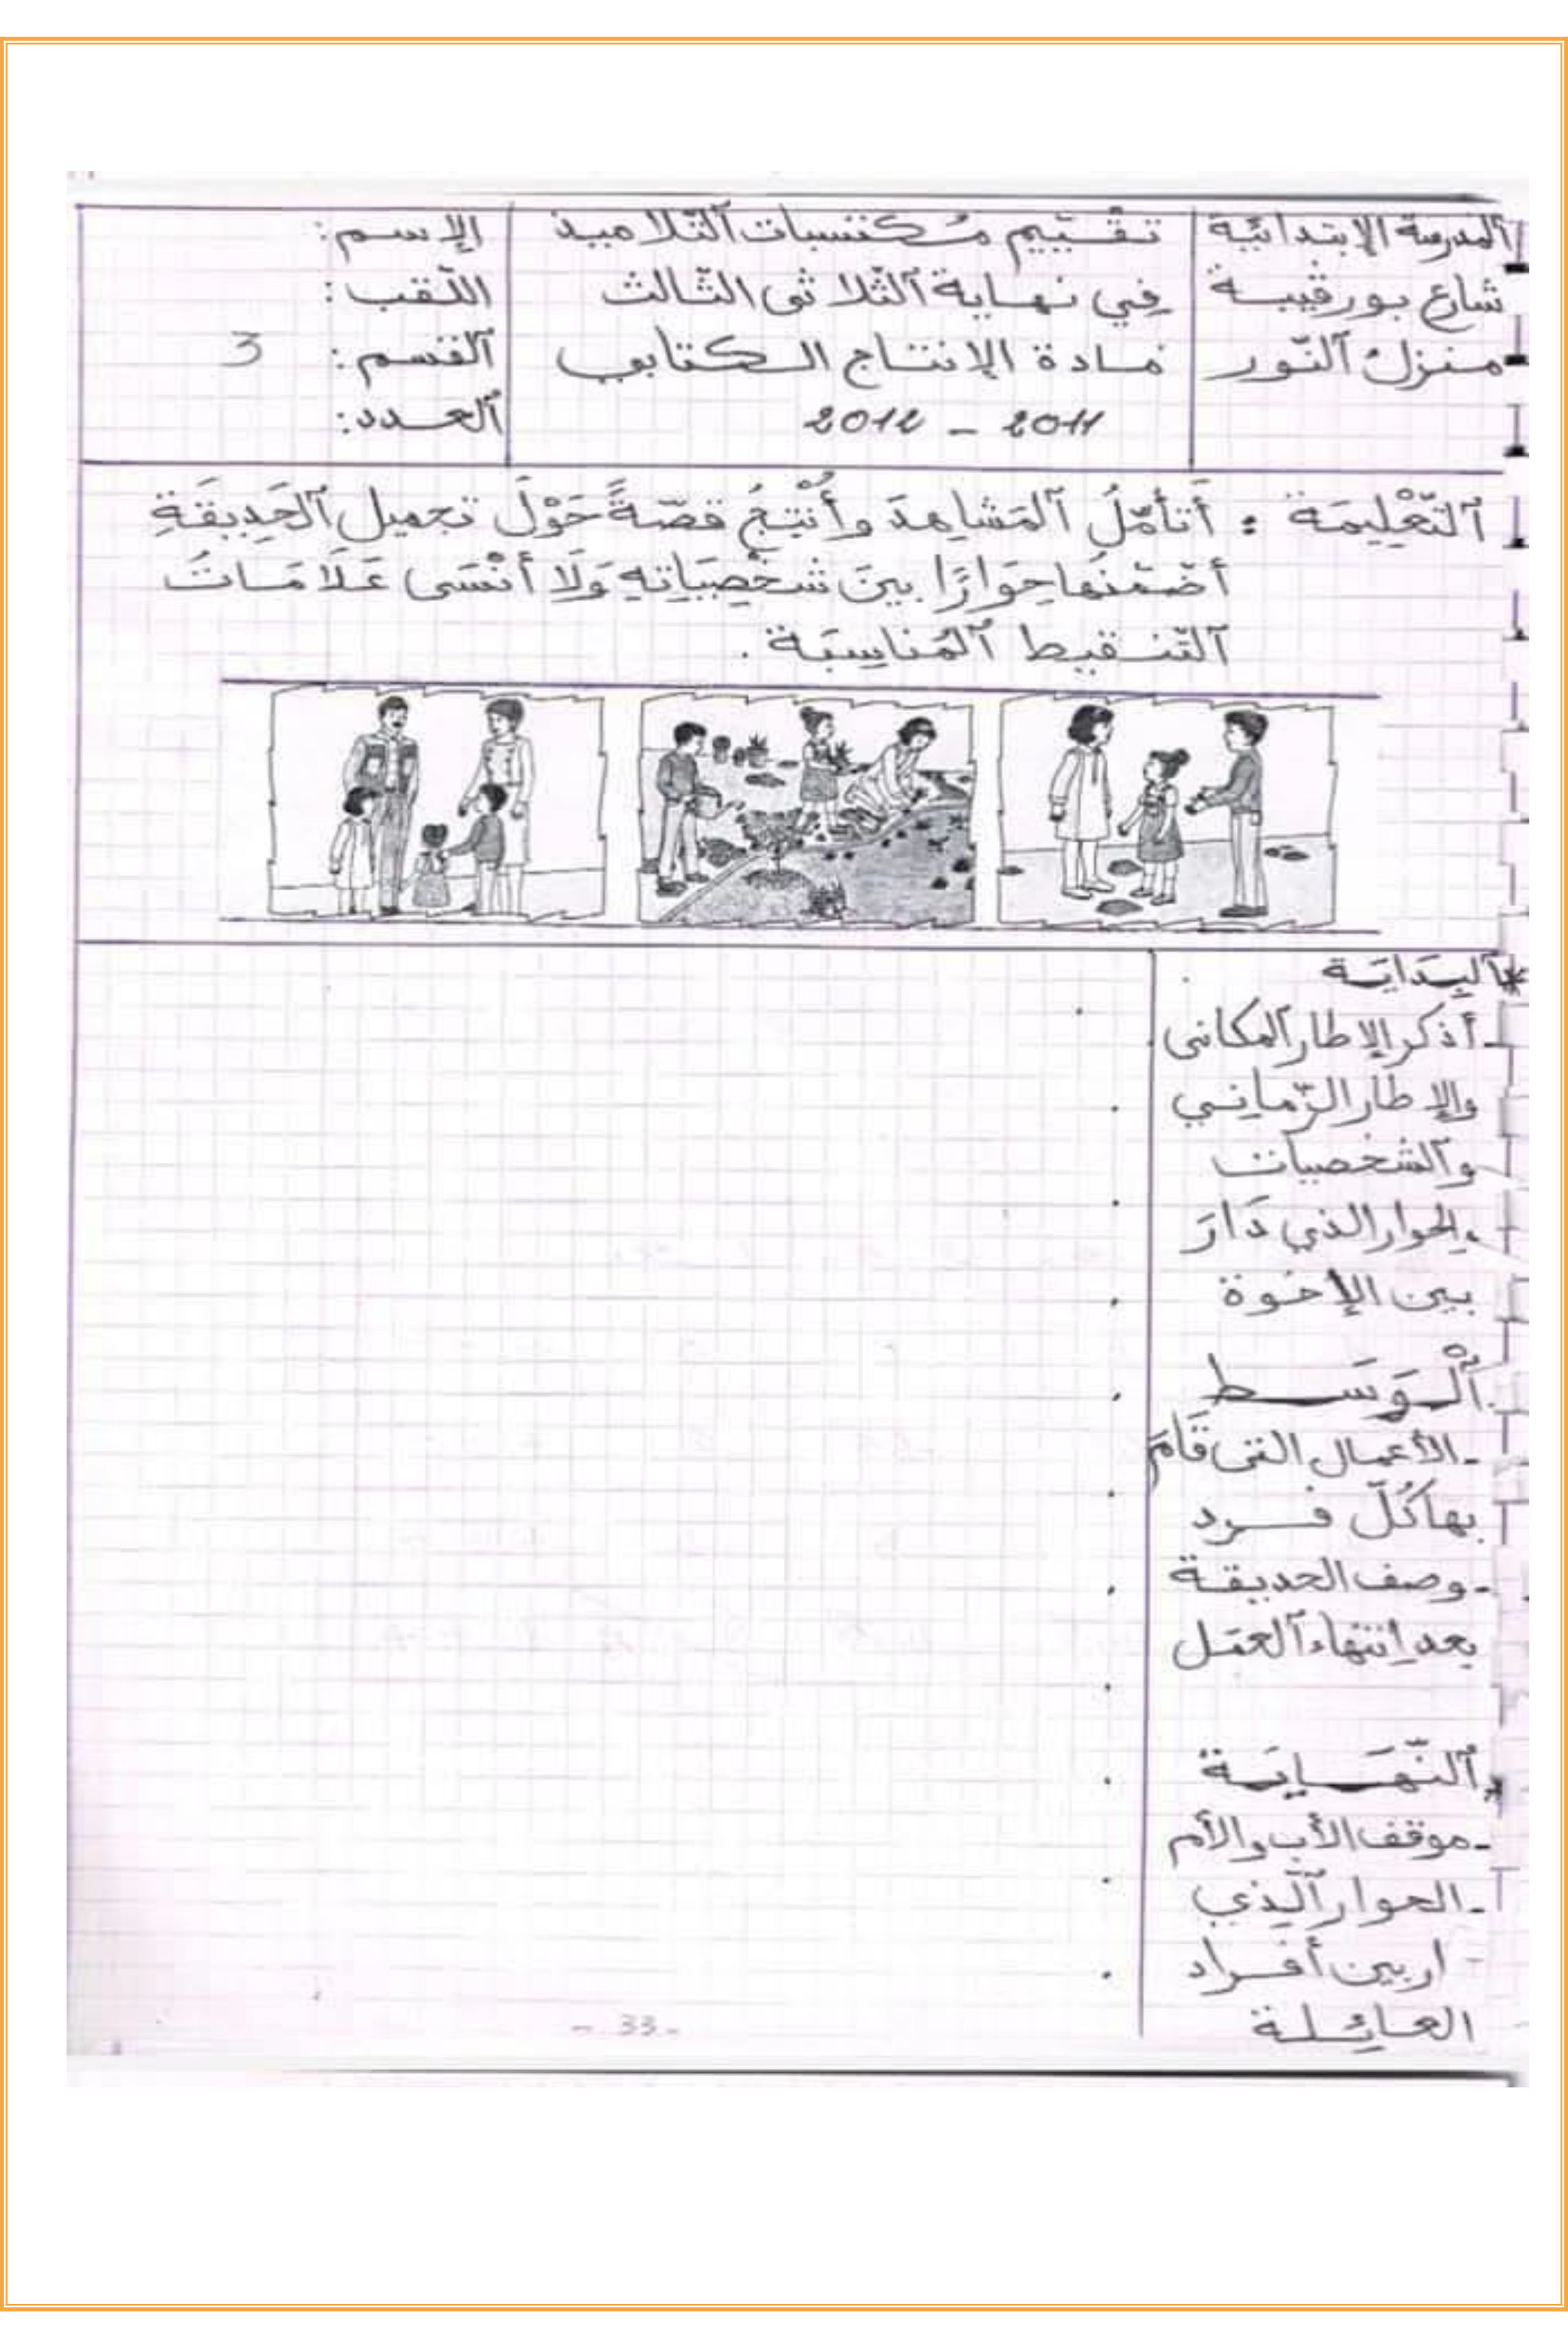 المدرسة الإبتدائية
شارع بورقيبة
منزل ٱلنّور
تقييم مكتسبات ٱلتّلاميذ
في نهاية ٱلثّلاثي الثّالث
مادة الإنتاج الكتابي
2011 - 2012
الإسم:
اللّقب:
ٱلقسم: 3
ٱلعدد:
ٱلتّعْلِيمَة : أَتأمّلُ ٱلمَشاهِدَ وأُنْتِجُ قصّةً حَوْلَ تجميل ٱلحَدِيقَةِ
أضمّنها حِوَارًا بينَ شخْصِيَاتِهِ وَلَا أنْسَى عَلَامَاتَ
ٱلتّنقيط ٱلمُناسِبَة .
*ٱلبِدَايَة
- أذكر الإطار ٱلمكاني
والإطار الزّمانِي
وٱلشخصيات
- الحوار الذي دَارَ
بين الإخوة
ٱلْوَسَط
- الأعمال التي قَامَ
بها كُلّ فرد
- وصف الحديقة
بعد اِنتهاء ٱلعمَل
*ٱلنّهَايَة
- موقف الأب والأم
- الحوار ٱلّذي
ار بين أفراد
العائِلة
- 33 -